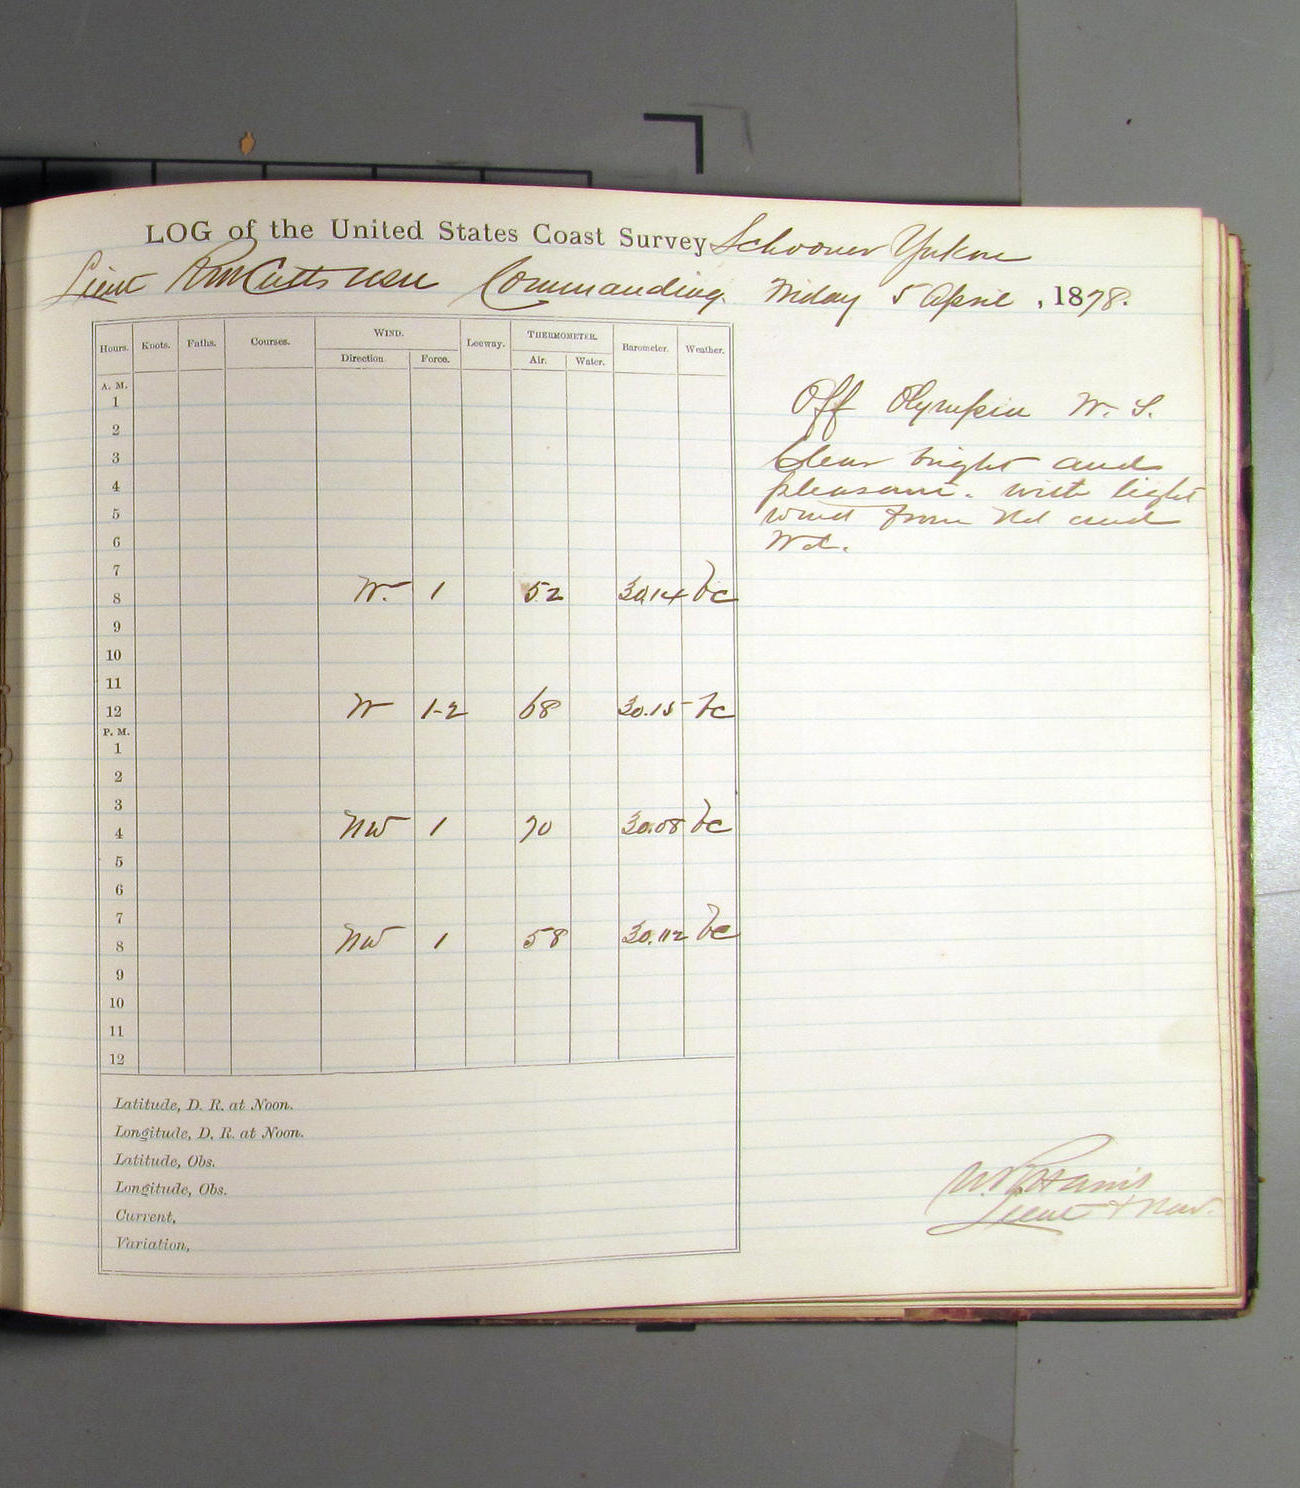 LOG of the United States Coast Survey Schooner Yukon
Lieut R M Cutts USN Commanding. Friday 5 April, 1878.
WIND. THERMOMETER.
Hours. Knots. Faths. Courses. Direction. Force. Leeway. Air. Water. Barometer. Weather.
A. M.
1
2
3
4
5
6
7
8 W. 1 52 30.14 bc
9
10
11
12 W 1-2 68 30.15 bc
P. M.
1
2
3
4 NW 1 70 30.08 bc
5
6
7
8 NW 1 58 30.112 bc
9
10
11
12
Latitude, D. R. at Noon.
Longitude, D. R. at Noon.
Latitude, Obs.
Longitude, Obs.
Current,
Variation,
Off Olympia W. T.
Clear bright and
pleasant. with light
wind from Nd and
Wd.
Harris
Lieut & Nav.